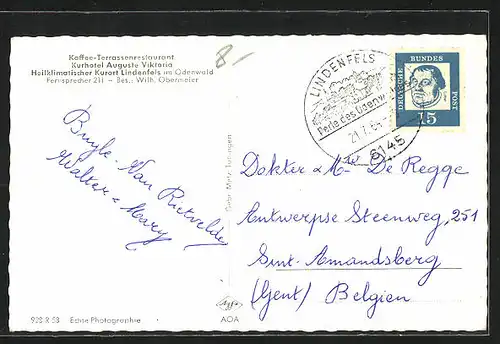 Kaffee-Terrassenrestaurant
Kurhotel Auguste Viktoria
Heilklimatischer Kurort Lindenfels im Odenwald
Fernsprecher 211 – Bes.: Wilh. Obermeier
8-
LINDENFELS
Perle des Odenw
6145
DEUTSCHE BUNDES POST
15
Dokter & Mw De Regge
Antwerpse Steenweg, 251
Sint-Amandsberg
(Gent) Belgien
Van Rietvelde
Walter & Mary
Gebr. Metz, Tübingen
Agfa
AOA
Echte Photographie